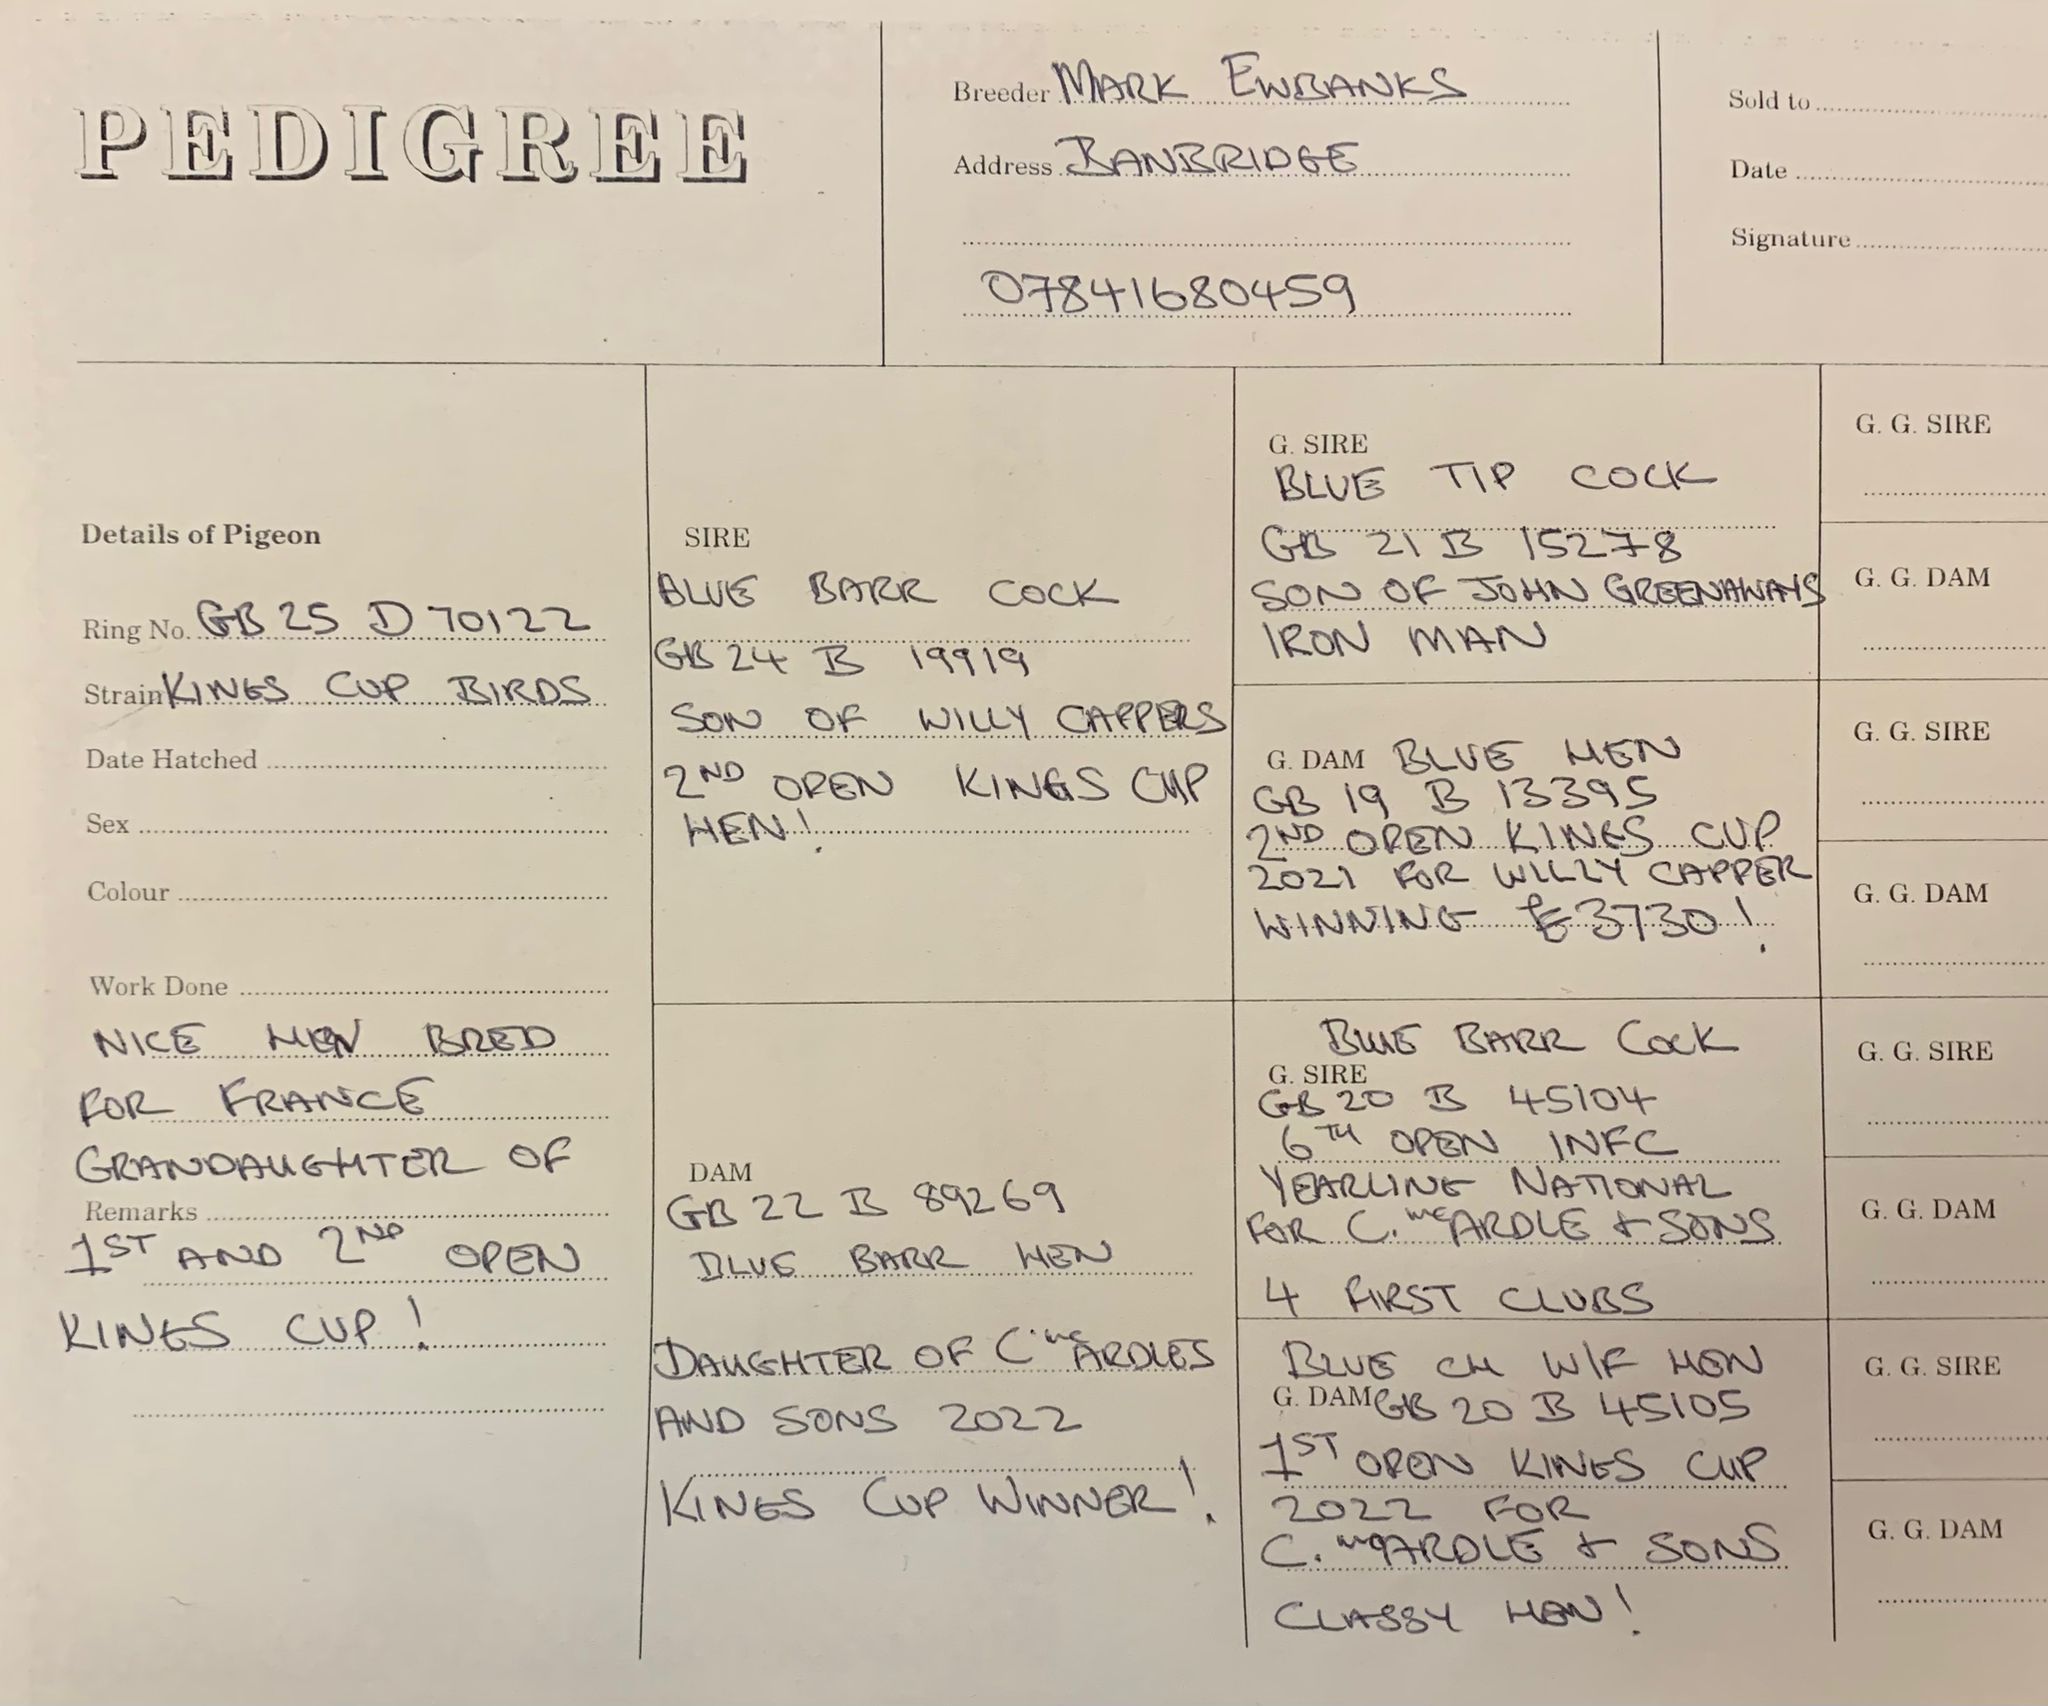 PEDIGREE
Breeder MARK EWBANKS
Address BANBRIDGE
07841680459
Sold to
Date
Signature
Details of Pigeon
Ring No. GB 25 D 70122
Strain KINGS CUP BIRDS
Date Hatched
Sex
Colour
Work Done
NICE HEN BRED
FOR FRANCE
GRANDAUGHTER OF
Remarks
1ST AND 2ND OPEN
KINGS CUP!
SIRE
BLUE BARR COCK
GB 24 B 19919
SON OF WILLY CAPPERS
2ND OPEN KINGS CUP
HEN!
DAM
GB 22 B 89269
BLUE BARR HEN
DAUGHTER OF C. MCARDLES
AND SONS 2022
KINGS CUP WINNER!
G. SIRE
BLUE TIP COCK
GB 21 B 15278
SON OF JOHN GREENAWAYS
IRON MAN
G. DAM BLUE HEN
GB 19 B 13395
2ND OPEN KINGS CUP
2021 FOR WILLY CAPPER
WINNING £3730!
BLUE BARR COCK
G. SIRE
GB 20 B 45104
6TH OPEN INFC
YEARLING NATIONAL
FOR C. MCARDLE & SONS
4 FIRST CLUBS
BLUE CH W/F HEN
G. DAM GB 20 B 45105
1ST OPEN KINGS CUP
2022 FOR
C. MCARDLE & SONS
CLASSY HEN!
G. G. SIRE
G. G. DAM
G. G. SIRE
G. G. DAM
G. G. SIRE
G. G. DAM
G. G. SIRE
G. G. DAM